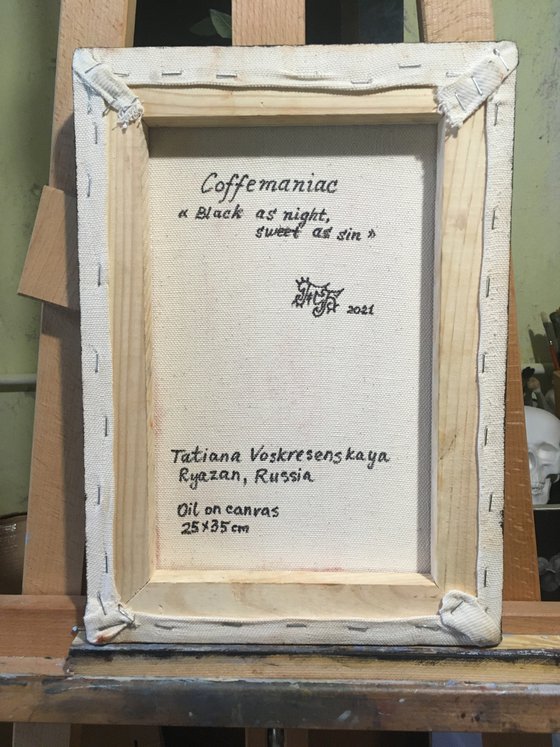 Coffemaniac
« Black as night,
sweet as sin »
2021
Tatiana Voskresenskaya
Ryazan, Russia
Oil on canvas
25×35cm